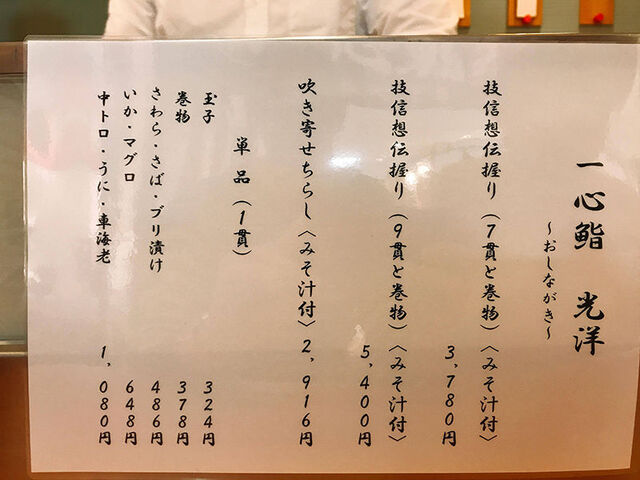 一心鮨 光洋
～おしながき～
技信想伝握り（7貫と巻物）〈みそ汁付〉
3,780円
技信想伝握り（9貫と巻物）〈みそ汁付〉
5,400円
吹き寄せちらし〈みそ汁付〉2,916円
単品（1貫）
玉子 324円
巻物 378円
さわら・さば・ブリ漬け 486円
いか・マグロ 648円
中トロ・うに・車海老 1,080円